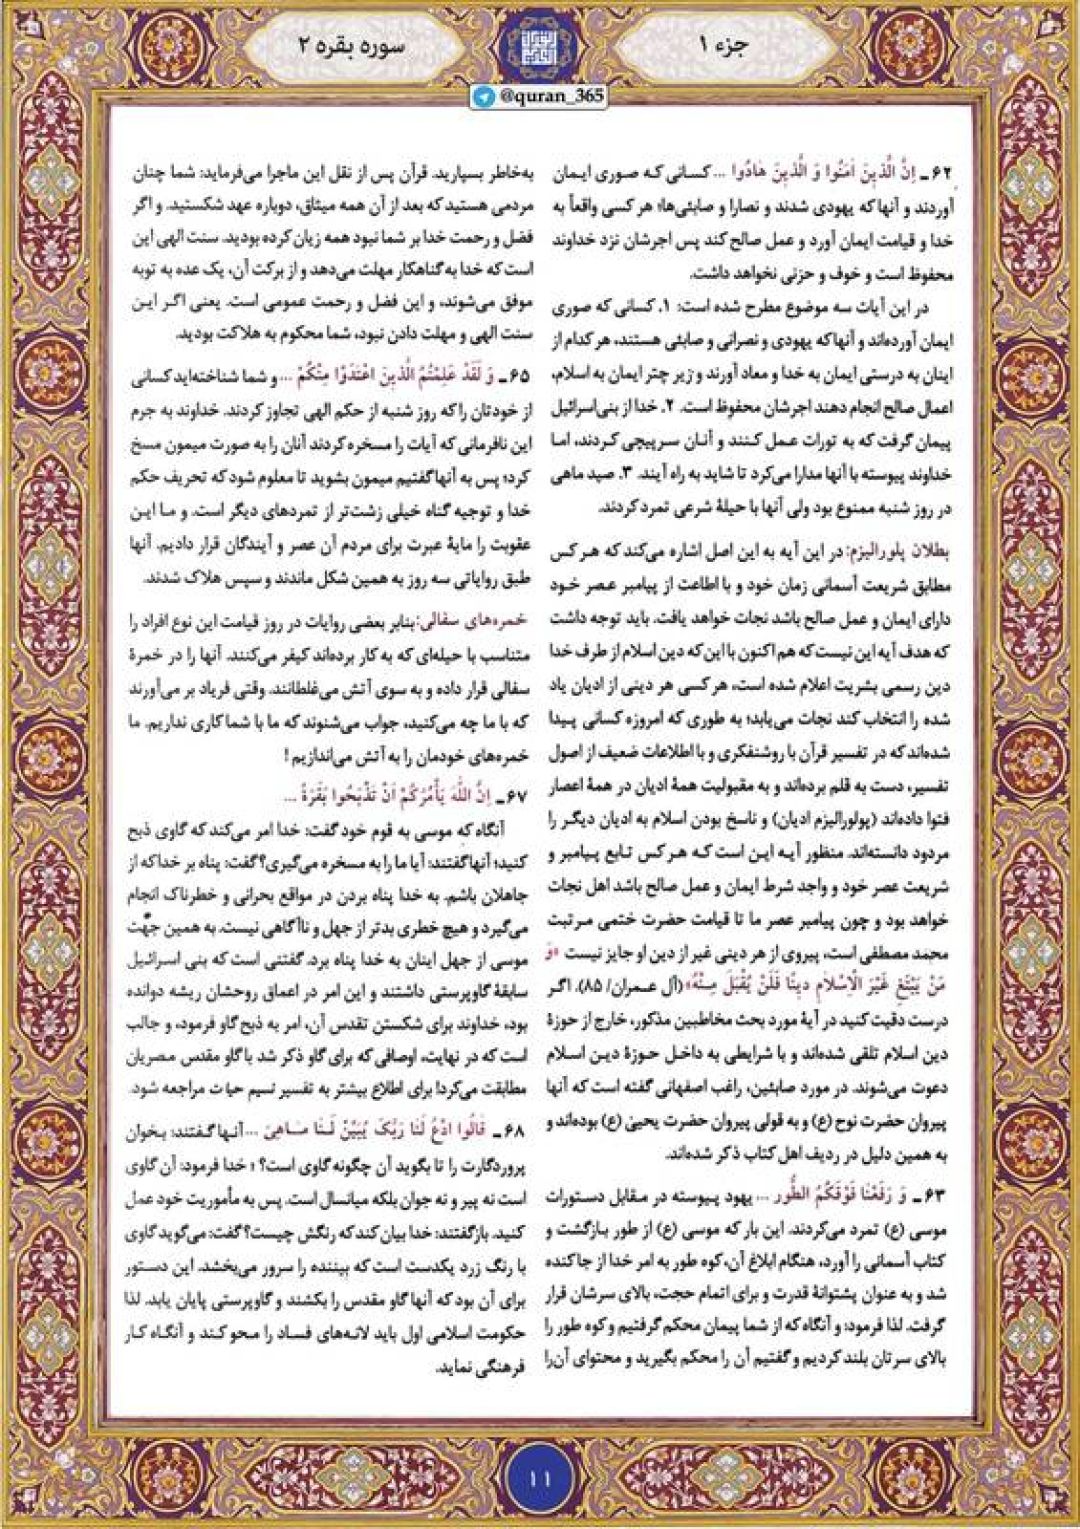 جزء ۱
سوره بقره ۲
@quran_365
۶۲ـ اِنَّ الَّذینَ اٰمَنُوا وَ الَّذینَ هٰادُوا ... کسانی که صوری ایمان
آوردند و آنها که یهودی شدند و نصارا و صابئی‌ها؛ هر کسی واقعاً به
خدا و قیامت ایمان آورد و عمل صالح کند پس اجرشان نزد خداوند
محفوظ است و خوف و حزنی نخواهد داشت.
در این آیات سه موضوع مطرح شده است: ۱. کسانی که صوری
ایمان آورده‌اند و آنها که یهودی و نصرانی و صابئی هستند، هر کدام از
اینان به درستی ایمان به خدا و معاد آورند و زیر چتر ایمان به اسلام،
اعمال صالح انجام دهند اجرشان محفوظ است. ۲. خدا از بنی‌اسرائیل
پیمان گرفت که به تورات عمل کنند و آنان سرپیچی کردند، اما
خداوند پیوسته با آنها مدارا می‌کرد تا شاید به راه آیند. ۳. صید ماهی
در روز شنبه ممنوع بود ولی آنها با حیلهٔ شرعی تمرد کردند.
بطلان پلورالیزم: در این آیه به این اصل اشاره می‌کند که هر کس
مطابق شریعت آسمانی زمان خود و با اطاعت از پیامبر عصر خود
دارای ایمان و عمل صالح باشد نجات خواهد یافت. باید توجه داشت
که هدف آیه این نیست که هم اکنون با این‌که دین اسلام از طرف خدا
دین رسمی بشریت اعلام شده است، هر کسی هر دینی از ادیان یاد
شده را انتخاب کند نجات می‌یابد؛ به طوری که امروزه کسانی پیدا
شده‌اند که در تفسیر قرآن با روشنفکری و با اطلاعات ضعیف از اصول
تفسیر، دست به قلم برده‌اند و به مقبولیت همهٔ ادیان در همهٔ اعصار
فتوا داده‌اند (پولورالیزم ادیان) و ناسخ بودن اسلام به ادیان دیگر را
مردود دانسته‌اند. منظور آیه این است که هر کس تابع پیامبر و
شریعت عصر خود و واجد شرط ایمان و عمل صالح باشد اهل نجات
خواهد بود و چون پیامبر عصر ما تا قیامت حضرت ختمی مرتبت
محمد مصطفی است، پیروی از هر دینی غیر از دین او جایز نیست «وَ
مَنْ یَبْتَغِ غَیْرَ الْاِسْلٰامِ دینًا فَلَنْ یُقْبَلَ مِنْهُ» (آل عمران/ ۸۵). اگر
درست دقیت کنید در آیهٔ مورد بحث مخاطبین مذکور، خارج از حوزهٔ
دین اسلام تلقی شده‌اند و با شرایطی به داخل حوزهٔ دین اسلام
دعوت می‌شوند. در مورد صابئین، راغب اصفهانی گفته است که آنها
پیروان حضرت نوح (ع) و به قولی پیروان حضرت یحییٰ (ع) بوده‌اند و
به همین دلیل در ردیف اهل کتاب ذکر شده‌اند.
۶۳ـ وَ رَفَعْنٰا فَوْقَکُمُ الطُّورَ ... یهود پیوسته در مقابل دستورات
موسی (ع) تمرد می‌کردند. این بار که موسی (ع) از طور بازگشت و
کتاب آسمانی را آورد، هنگام ابلاغ آن، کوه طور به امر خدا از جا کنده
شد و به عنوان پشتوانهٔ قدرت و برای اتمام حجت، بالای سرشان قرار
گرفت. لذا فرمود: و آنگاه که از شما پیمان محکم گرفتیم و کوه طور را
بالای سرتان بلند کردیم و گفتیم آن را محکم بگیرید و محتوای آن را
به‌خاطر بسپارید. قرآن پس از نقل این ماجرا می‌فرماید: شما چنان
مردمی هستید که بعد از آن همه میثاق، دوباره عهد شکستید. و اگر
فضل و رحمت خدا بر شما نبود همه زیان کرده بودید. سنت الهی این
است که خدا به گناهکار مهلت می‌دهد و از برکت آن، یک عده به توبه
موفق می‌شوند، و این فضل و رحمت عمومی است. یعنی اگر این
سنت الهی و مهلت دادن نبود، شما محکوم به هلاکت بودید.
۶۵ـ وَ لَقَدْ عَلِمْتُمُ الَّذینَ اعْتَدَوْا مِنْکُمْ ... و شما شناخته‌اید کسانی
از خودتان را که روز شنبه از حکم الهی تجاوز کردند. خداوند به جرم
این نافرمانی که آیات را مسخره کردند آنان را به صورت میمون مسخ
کرد؛ پس به آنها گفتیم میمون بشوید تا معلوم شود که تحریف حکم
خدا و توجیه گناه خیلی زشت‌تر از تمردهای دیگر است. و ما این
عقوبت را مایهٔ عبرت برای مردم آن عصر و آیندگان قرار دادیم. آنها
طبق روایاتی سه روز به همین شکل ماندند و سپس هلاک شدند.
خمره‌های سفالی: بنابر بعضی روایات در روز قیامت این نوع افراد را
متناسب با حیله‌ای که به کار برده‌اند کیفر می‌کنند. آنها را در خمرهٔ
سفالی قرار داده و به سوی آتش می‌غلطانند. وقتی فریاد بر می‌آورند
که با ما چه می‌کنید، جواب می‌شنوند که ما با شما کاری نداریم. ما
خمره‌های خودمان را به آتش می‌اندازیم!
۶۷ـ اِنَّ اللّٰهَ یَأْمُرُکُمْ اَنْ تَذْبَحُوا بَقَرَةً ...
آنگاه که موسی به قوم خود گفت: خدا امر می‌کند که گاوی ذبح
کنید؛ آنها گفتند: آیا ما را به مسخره می‌گیری؟ گفت: پناه بر خدا که از
جاهلان باشم. به خدا پناه بردن در مواقع بحرانی و خطرناک انجام
می‌گیرد و هیچ خطری بدتر از جهل و ناآگاهی نیست. به همین جهت
موسی از جهل اینان به خدا پناه برد. گفتنی است که بنی اسرائیل
سابقهٔ گاوپرستی داشتند و این امر در اعماق روحشان ریشه دوانده
بود، خداوند برای شکستن تقدس آن، امر به ذبح گاو فرمود، و جالب
است که در نهایت، اوصافی که برای گاو ذکر شد با گاو مقدس مصریان
مطابقت می‌کرد! برای اطلاع بیشتر به تفسیر نسیم حیات مراجعه شود.
۶۸ـ قٰالُوا ادْعُ لَنٰا رَبَّکَ یُبَیِّنْ لَنٰا مٰاهِیَ ... آنها گفتند: بخوان
پروردگارت را تا بگوید آن چگونه گاوی است؟ ؛ خدا فرمود: آن گاوی
است نه پیر و نه جوان بلکه میانسال است. پس به مأموریت خود عمل
کنید. باز گفتند: خدا بیان کند که رنگش چیست؟ گفت: می‌گوید گاوی
با رنگ زرد یکدست است که بیننده را سرور می‌بخشد. این دستور
برای آن بود که آنها گاو مقدس را بکشند و گاوپرستی پایان یابد. لذا
حکومت اسلامی اول باید لانه‌های فساد را محو کند و آنگاه کار
فرهنگی نماید.
۱۱